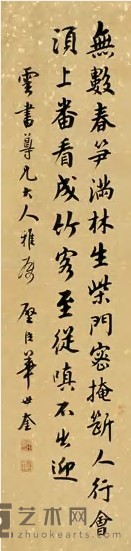 無數春笋滿林生柴門密掩斷人行會
須上番看成竹客至從嗔不出迎
雲書尊兄大人雅屬 璧臣華世奎
艺术网
www.zhuokearts.com